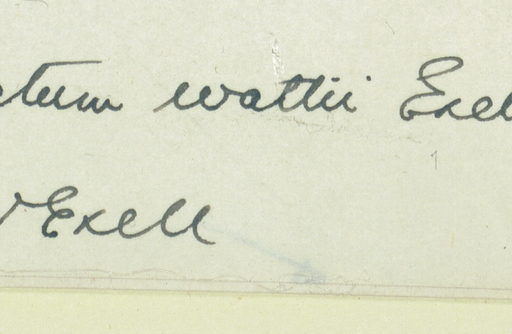 ctum wattii Exell
Exell